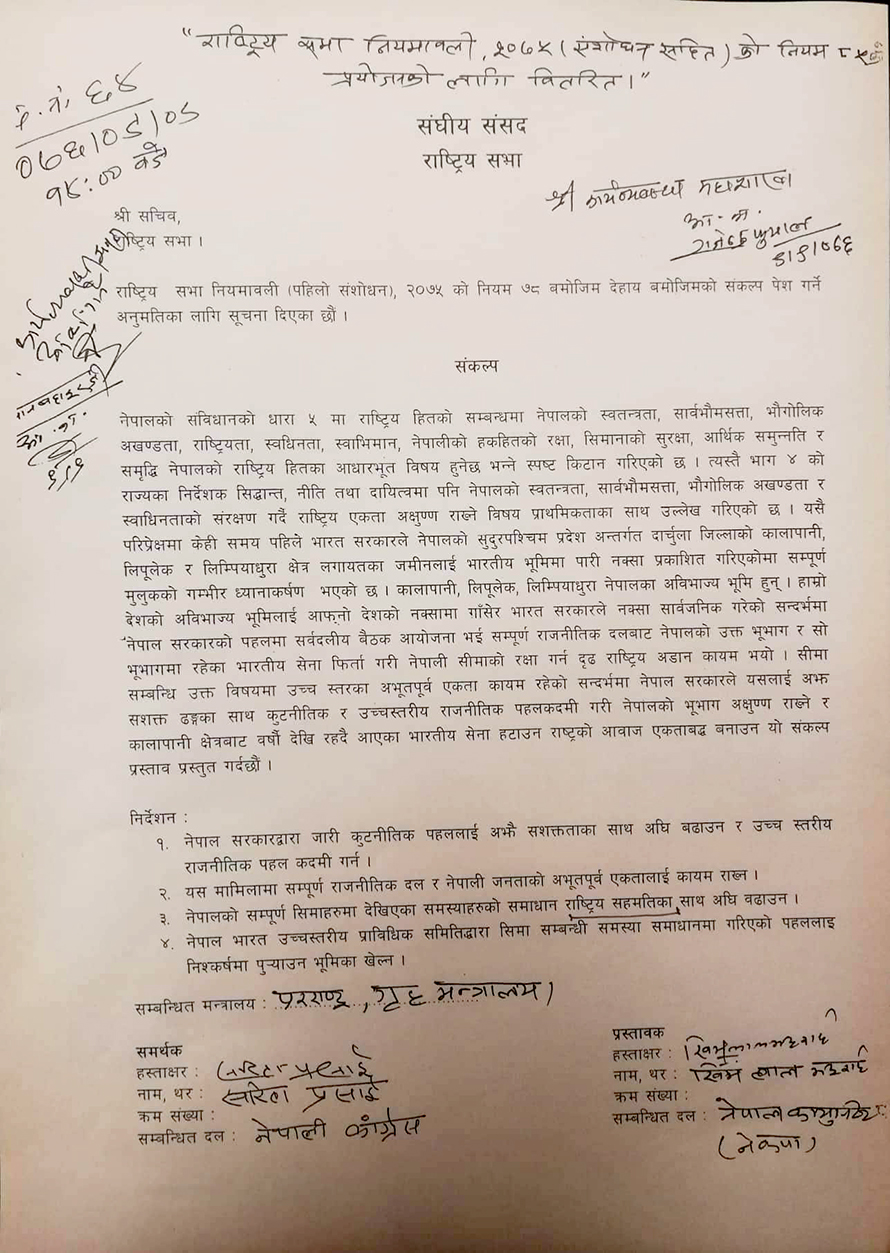 "राष्ट्रिय सभा नियमावली, २०७५ (संशोधन सहित) को नियम
प्रयोजनको लागि वितरित।"
६४
०७६।०९।०९
१४:०० बजे
संघीय संसद
राष्ट्रिय सभा
श्री कार्यव्यवस्था महाशाखा
श्री सचिव,
राष्ट्रिय सभा ।
राष्ट्रिय सभा नियमावली (पहिलो संशोधन), २०७५ को नियम ७८ बमोजिम देहाय बमोजिमको संकल्प पेश गर्ने
अनुमतिका लागि सूचना दिएका छौं ।
संकल्प
नेपालको संविधानको धारा ५ मा राष्ट्रिय हितको सम्बन्धमा नेपालको स्वतन्त्रता, सार्वभौमसत्ता, भौगोलिक
अखण्डता, राष्ट्रियता, स्वधिनता, स्वाभिमान, नेपालीको हकहितको रक्षा, सिमानाको सुरक्षा, आर्थिक समुन्नति र
समृद्धि नेपालको राष्ट्रिय हितका आधारभूत विषय हुनेछ भन्ने स्पष्ट किटान गरिएको छ । त्यस्तै भाग ४ को
राज्यका निर्देशक सिद्धान्त, नीति तथा दायित्वमा पनि नेपालको स्वतन्त्रता, सार्वभौमसत्ता, भौगोलिक अखण्डता र
स्वाधिनताको संरक्षण गर्दै राष्ट्रिय एकता अक्षुण्ण राख्ने विषय प्राथमिकताका साथ उल्लेख गरिएको छ । यसै
परिप्रेक्षमा केही समय पहिले भारत सरकारले नेपालको सुदुरपश्चिम प्रदेश अन्तर्गत दार्चुला जिल्लाको कालापानी,
लिपूलेक र लिम्पियाधुरा क्षेत्र लगायतका जमीनलाई भारतीय भूमिमा पारी नक्सा प्रकाशित गरिएकोमा सम्पूर्ण
मुलुकको गम्भीर ध्यानाकर्षण भएको छ । कालापानी, लिपूलेक, लिम्पियाधुरा नेपालका अविभाज्य भूमि हुन् । हाम्रो
देशको अविभाज्य भूमिलाई आफ्नो देशको नक्सामा गाँसेर भारत सरकारले नक्सा सार्वजनिक गरेको सन्दर्भमा
नेपाल सरकारको पहलमा सर्वदलीय बैठक आयोजना भई सम्पूर्ण राजनीतिक दलबाट नेपालको उक्त भूभाग र सो
भूभागमा रहेका भारतीय सेना फिर्ता गरी नेपाली सीमाको रक्षा गर्न दृढ राष्ट्रिय अडान कायम भयो । सीमा
सम्बन्धि उक्त विषयमा उच्च स्तरका अभूतपूर्व एकता कायम रहेको सन्दर्भमा नेपाल सरकारले यसलाई अझ
सशक्त ढङ्गका साथ कुटनीतिक र उच्चस्तरीय राजनीतिक पहलकदमी गरी नेपालको भूभाग अक्षुण्ण राख्ने र
कालापानी क्षेत्रबाट वर्षौ देखि रहदै आएका भारतीय सेना हटाउन राष्ट्रको आवाज एकताबद्ध बनाउन यो संकल्प
प्रस्ताव प्रस्तुत गर्दछौं ।
निर्देशन :
१. नेपाल सरकारद्वारा जारी कुटनीतिक पहललाई अझै सशक्तताका साथ अघि बढाउन र उच्च स्तरीय
राजनीतिक पहल कदमी गर्न ।
२. यस मामिलामा सम्पूर्ण राजनीतिक दल र नेपाली जनताको अभूतपूर्व एकतालाई कायम राख्न ।
३. नेपालको सम्पूर्ण सिमाहरुमा देखिएका समस्याहरुको समाधान राष्ट्रिय सहमतिका साथ अघि वढाउन ।
४. नेपाल भारत उच्चस्तरीय प्राविधिक समितिद्वारा सिमा सम्बन्धी समस्या समाधानमा गरिएको पहललाइ
निश्कर्षमा पुऱ्याउन भूमिका खेल्न ।
सम्बन्धित मन्त्रालय : परराष्ट्र, गृह मन्त्रालय।
समर्थक
हस्ताक्षर : सरिता प्रसाई
नाम, थर : सरिता प्रसाई
क्रम संख्या :
सम्बन्धित दल : नेपाली कांग्रेस
प्रस्तावक
हस्ताक्षर :
नाम, थर : खिम लाल
क्रम संख्या :
सम्बन्धित दल : नेपाल
(नेकपा)